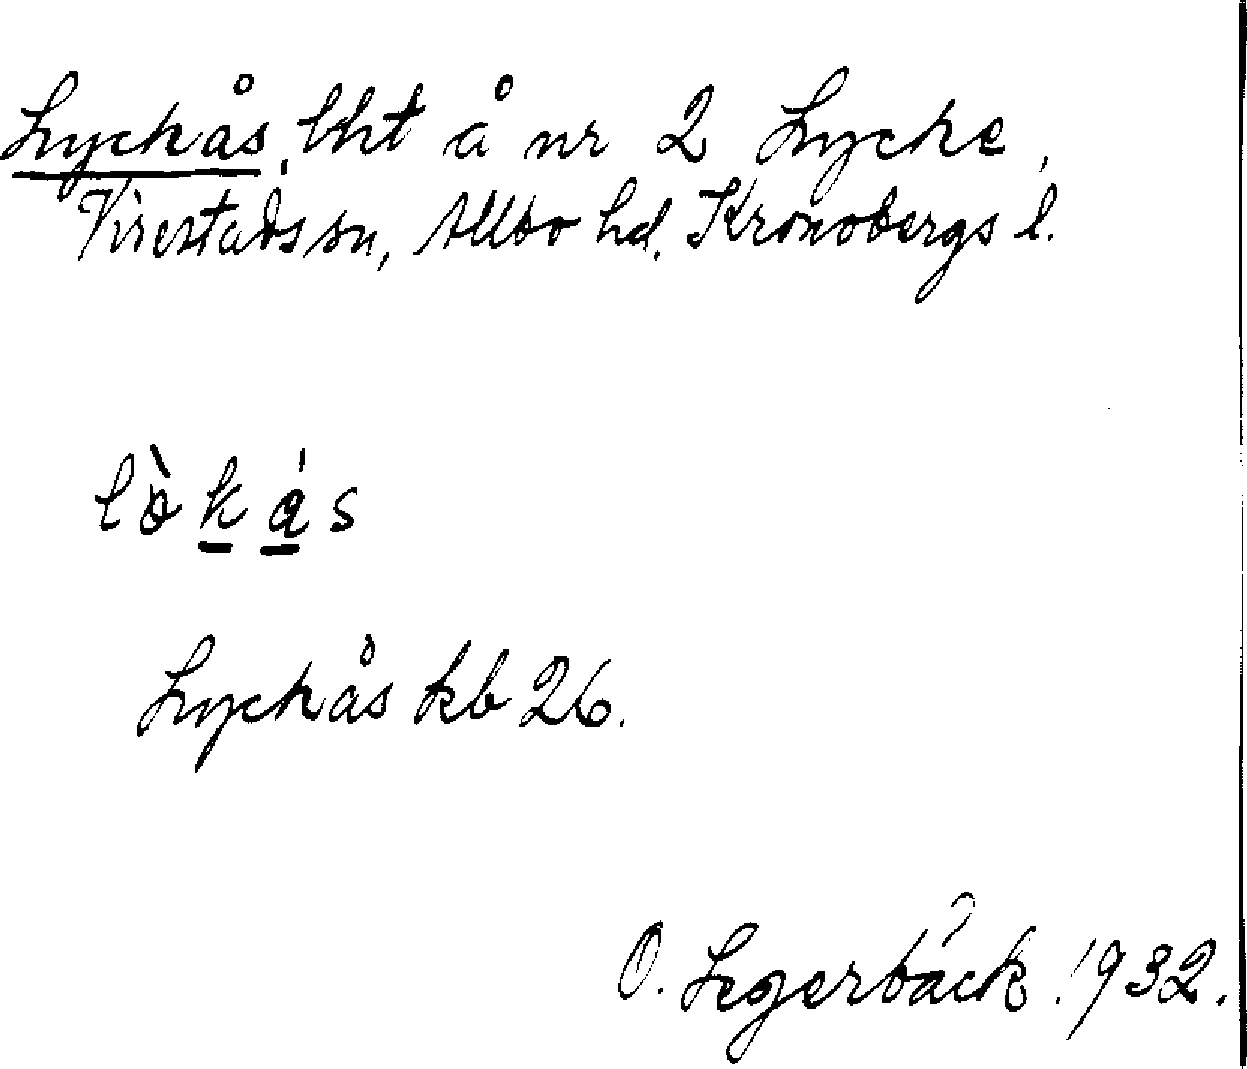 Lyckås, lht å nr 2 Lycke,
Virestads sn, Allbo hd, Kronobergs l.
lòkás
Lyckås kb 26.
O. Legerbäck. 1932.